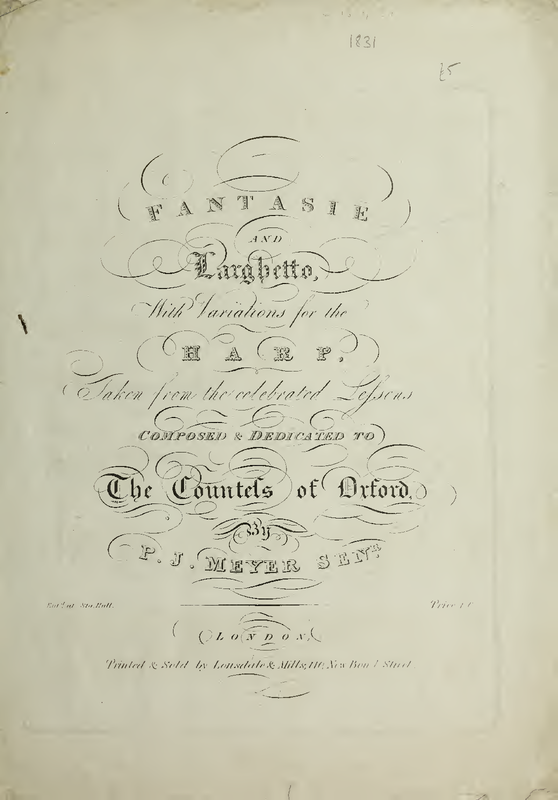 1831
£5
FANTASIE
AND
Larghetto,
With Variations for the
HARP,
Taken from the celebrated Leſsons
COMPOSED & DEDICATED TO
The Counteſs of Oxford,
By
P. J. MEYER SENR.
Ent. at Sta. Hall.
Price
LONDON,
Printed & Sold by Lonsdale & Mills, New Bond Street